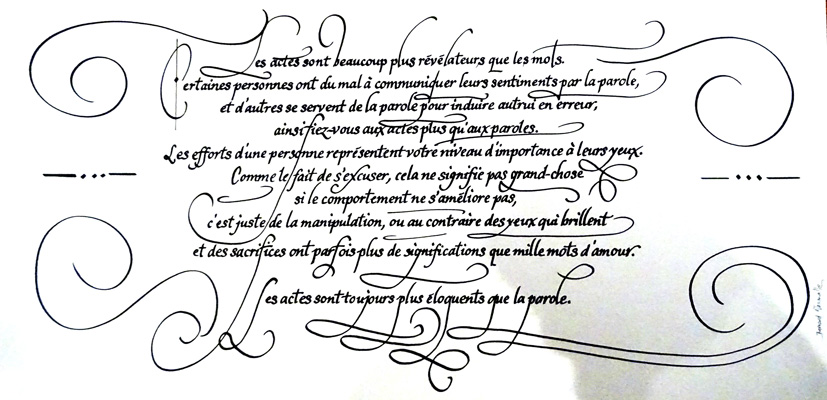 Les actes sont beaucoup plus révélateurs que les mots.
Certaines personnes ont du mal à communiquer leurs sentiments par la parole,
et d'autres se servent de la parole pour induire autrui en erreur,
ainsi fiez-vous aux actes plus qu'aux paroles.
Les efforts d'une personne représentent votre niveau d'importance à leurs yeux.
Comme le fait de s'excuser, cela ne signifie pas grand-chose
si le comportement ne s'améliore pas,
c'est juste de la manipulation, ou au contraire des yeux qui brillent
et des sacrifices ont parfois plus de significations que mille mots d'amour.
Les actes sont toujours plus éloquents que la parole.